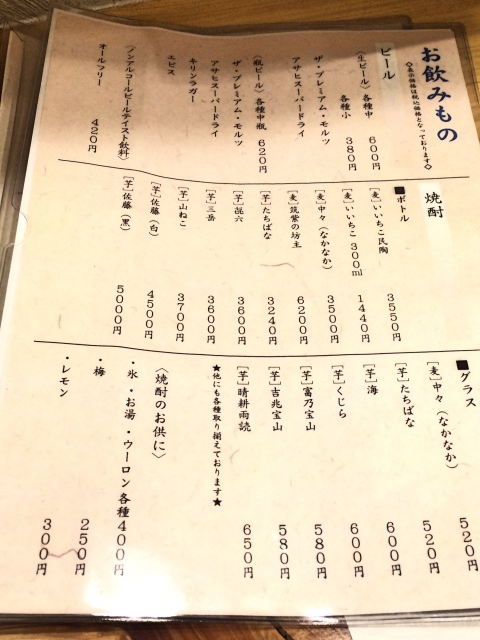 お飲みもの
◇表示価格は税込価格となっております◇
ビール
〈生ビール〉各種中 600円
各種小 380円
ザ・プレミアム・モルツ
アサヒスーパードライ
〈瓶ビール〉各種中瓶 620円
ザ・プレミアム・モルツ
アサヒスーパードライ
キリンラガー
エビス
〈ノンアルコールビールテイスト飲料〉
オールフリー 420円
焼酎
■ボトル
［麦］いいちこ民陶 3550円
［麦］いいちこ 300ml 1440円
［麦］中々（なかなか） 3500円
［麦］筑紫の坊主 6200円
［芋］たちばな 3240円
［芋］㐂六 3600円
［芋］三岳 3600円
［芋］山ねこ 3700円
［芋］佐藤（白） 4500円
［芋］佐藤（黒） 5000円
■グラス
［麦］中々（なかなか） 520円
［芋］たちばな 520円
［芋］海 600円
［芋］くじら 600円
［芋］富乃宝山 580円
［芋］吉兆宝山 580円
［芋］晴耕雨読 650円
★他にも各種取り揃えております★
〈焼酎のお供に〉
・氷・お湯・ウーロン各種 400円
・梅 250円
・レモン 300円